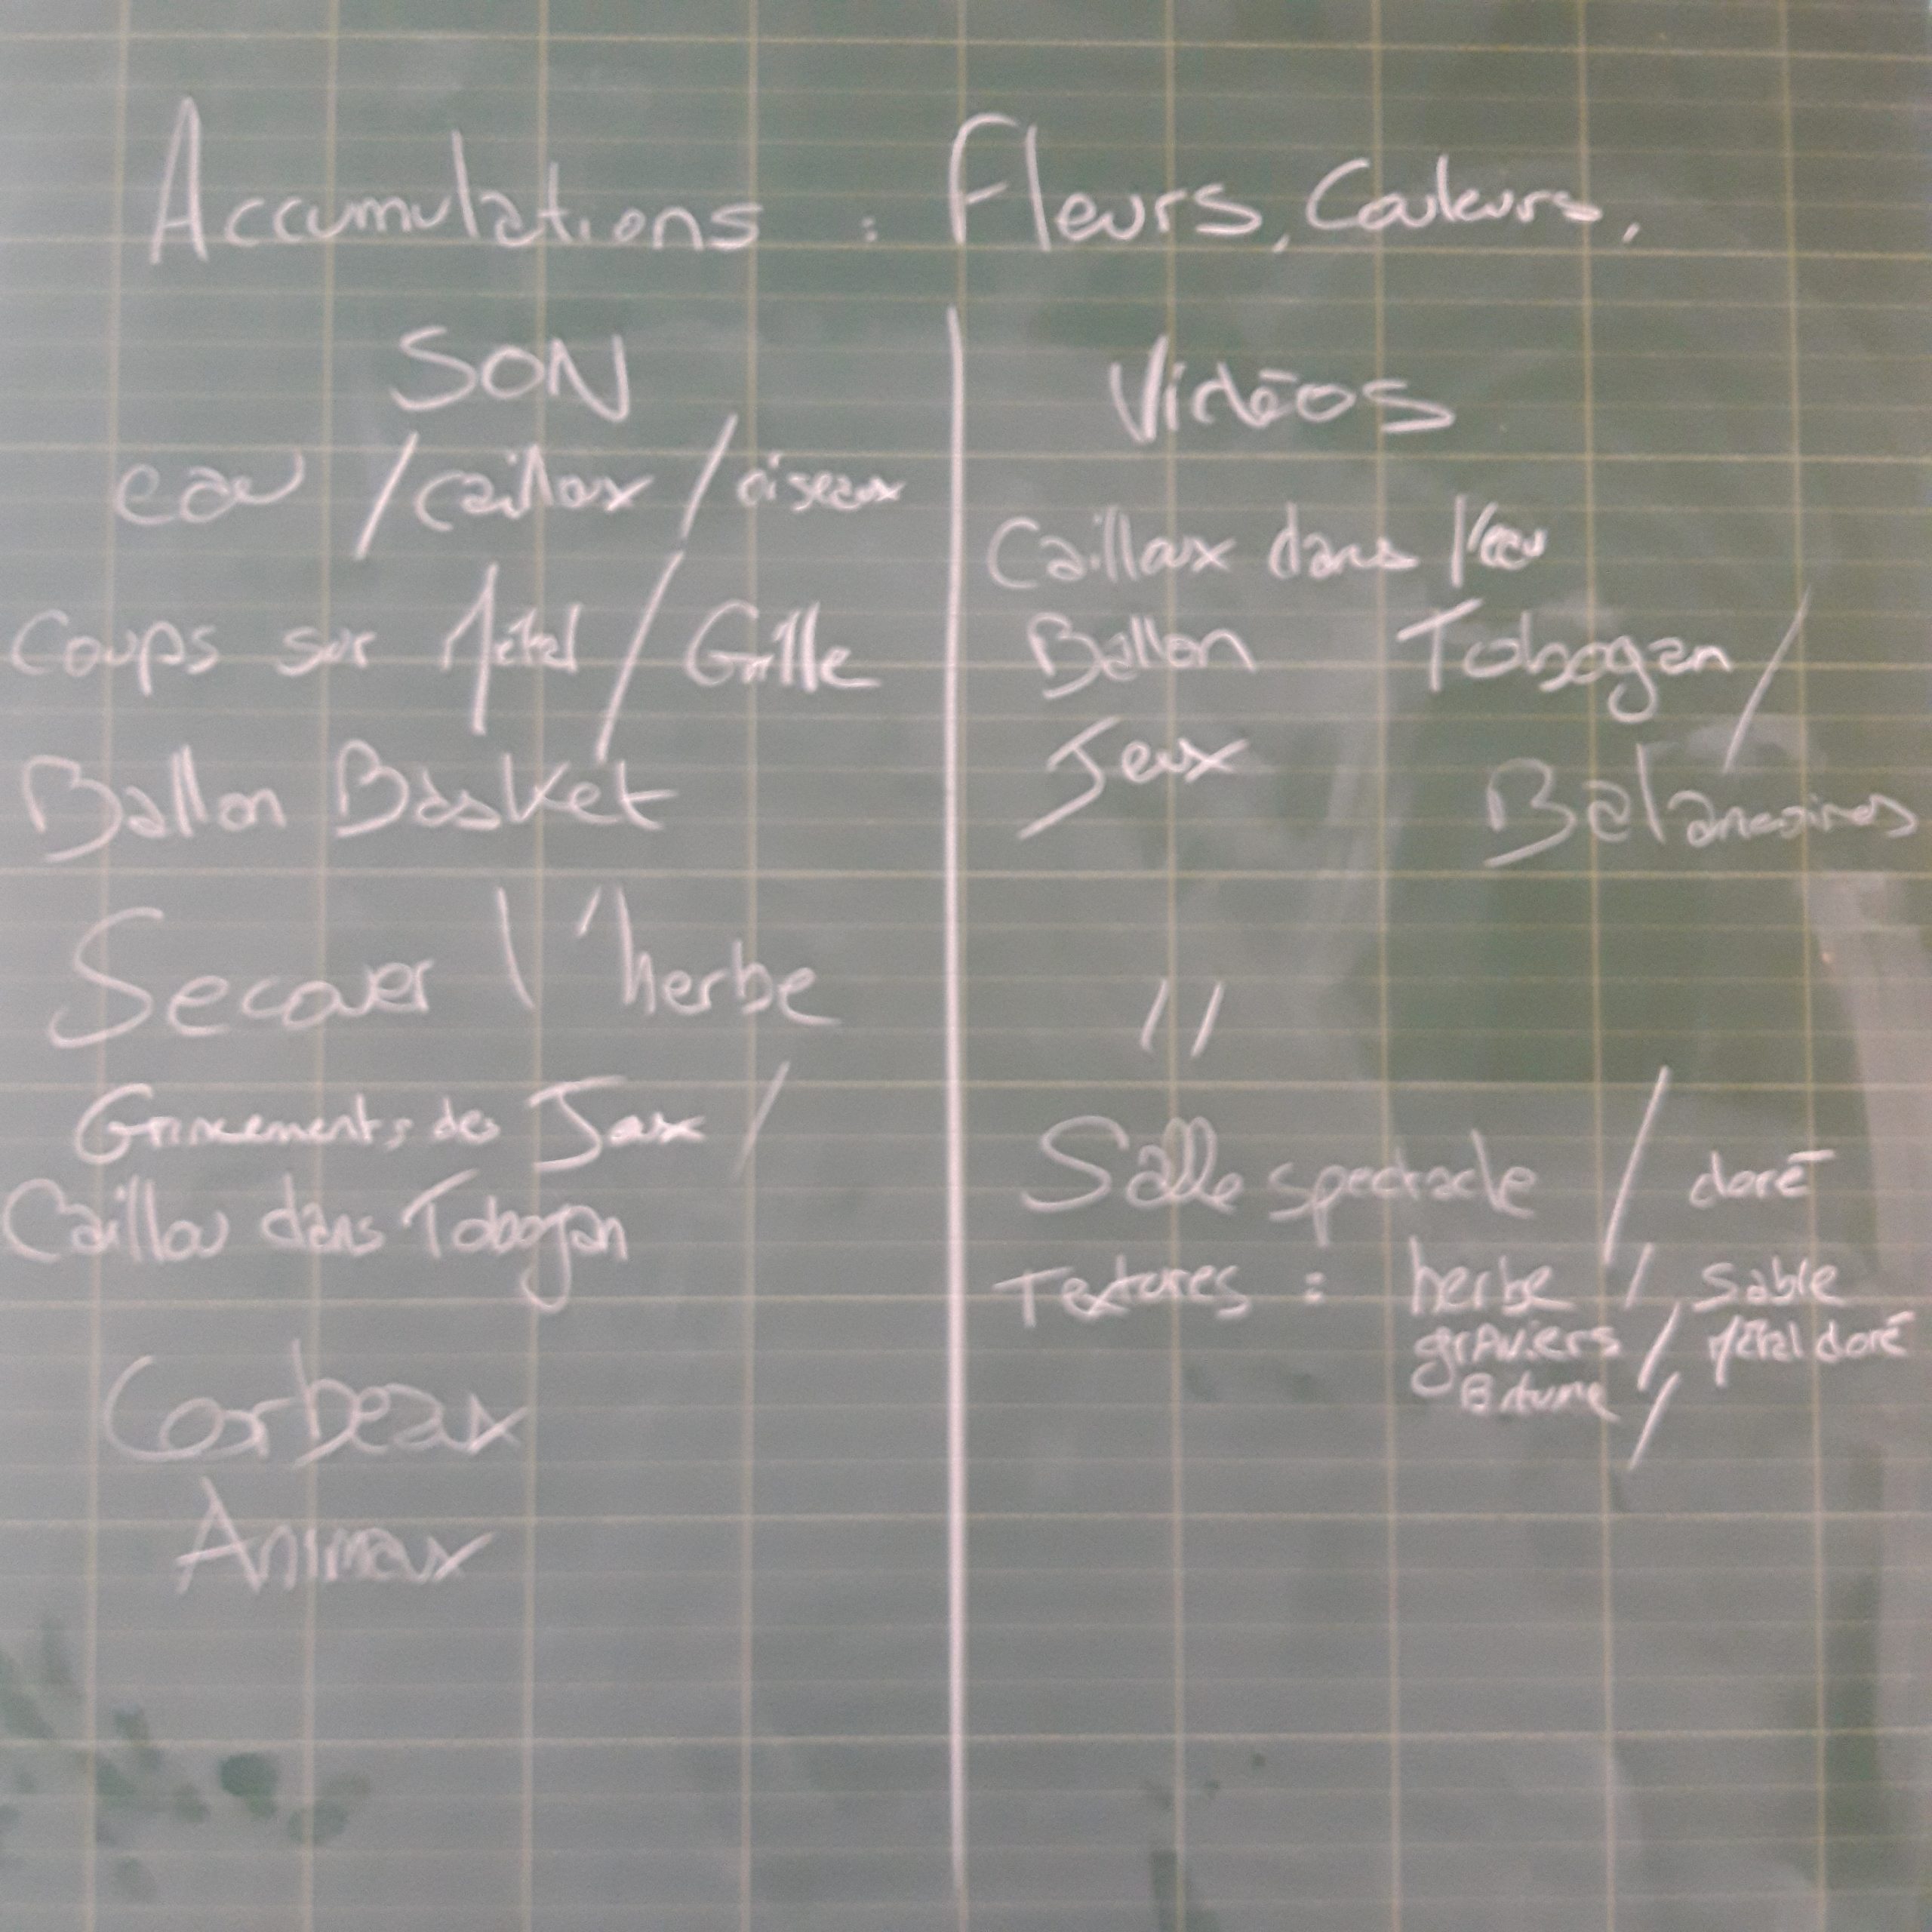 Accumulations : Fleurs, Couleurs,
SON
eau / cailloux / oiseaux
Coups sur Métal / Grille
Ballon Basket
Secouer l'herbe
Grincements des Jeux /
Caillou dans Tobogan
Corbeaux
Animaux
Vidéos
Cailloux dans l'eau
Ballon Tobogan /
Jeux Balançoires
"
Salle spectacle / doré
Textures : herbe / sable
graviers / Métal doré
Bitume /